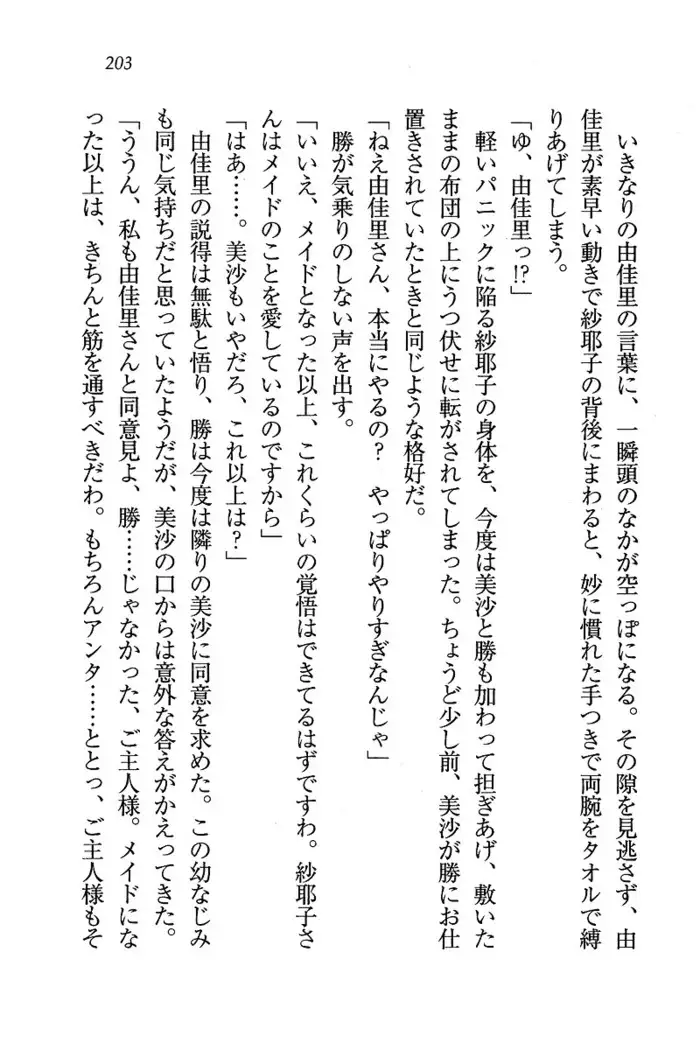 203
いきなりの由佳里の言葉に、一瞬頭のなかが空っぽになる。その隙を見逃さず、由
佳里が素早い動きで紗耶子の背後にまわると、妙に慣れた手つきで両腕をタオルで縛
りあげてしまう。
「ゆ、由佳里っ!?」
軽いパニックに陥る紗耶子の身体を、今度は美沙と勝も加わって担ぎあげ、敷いた
ままの布団の上にうつ伏せに転がされてしまった。ちょうど少し前、美沙が勝にお仕
置きされていたときと同じような格好だ。
「ねえ由佳里さん、本当にやるの？　やっぱりやりすぎなんじゃ」
勝が気乗りのしない声を出す。
「いいえ、メイドとなった以上、これくらいの覚悟はできてるはずですわ。紗耶子さ
んはメイドのことを愛しているのですから」
「はあ……。美沙もいやだろ、これ以上は？」
由佳里の説得は無駄と悟り、勝は今度は隣りの美沙に同意を求めた。この幼なじみ
も同じ気持ちだと思っていたようだが、美沙の口からは意外な答えがかえってきた。
「ううん、私も由佳里さんと同意見よ、勝……じゃなかった、ご主人様。メイドにな
った以上は、きちんと筋を通すべきだわ。もちろんアンタ……ととっ、ご主人様もそ